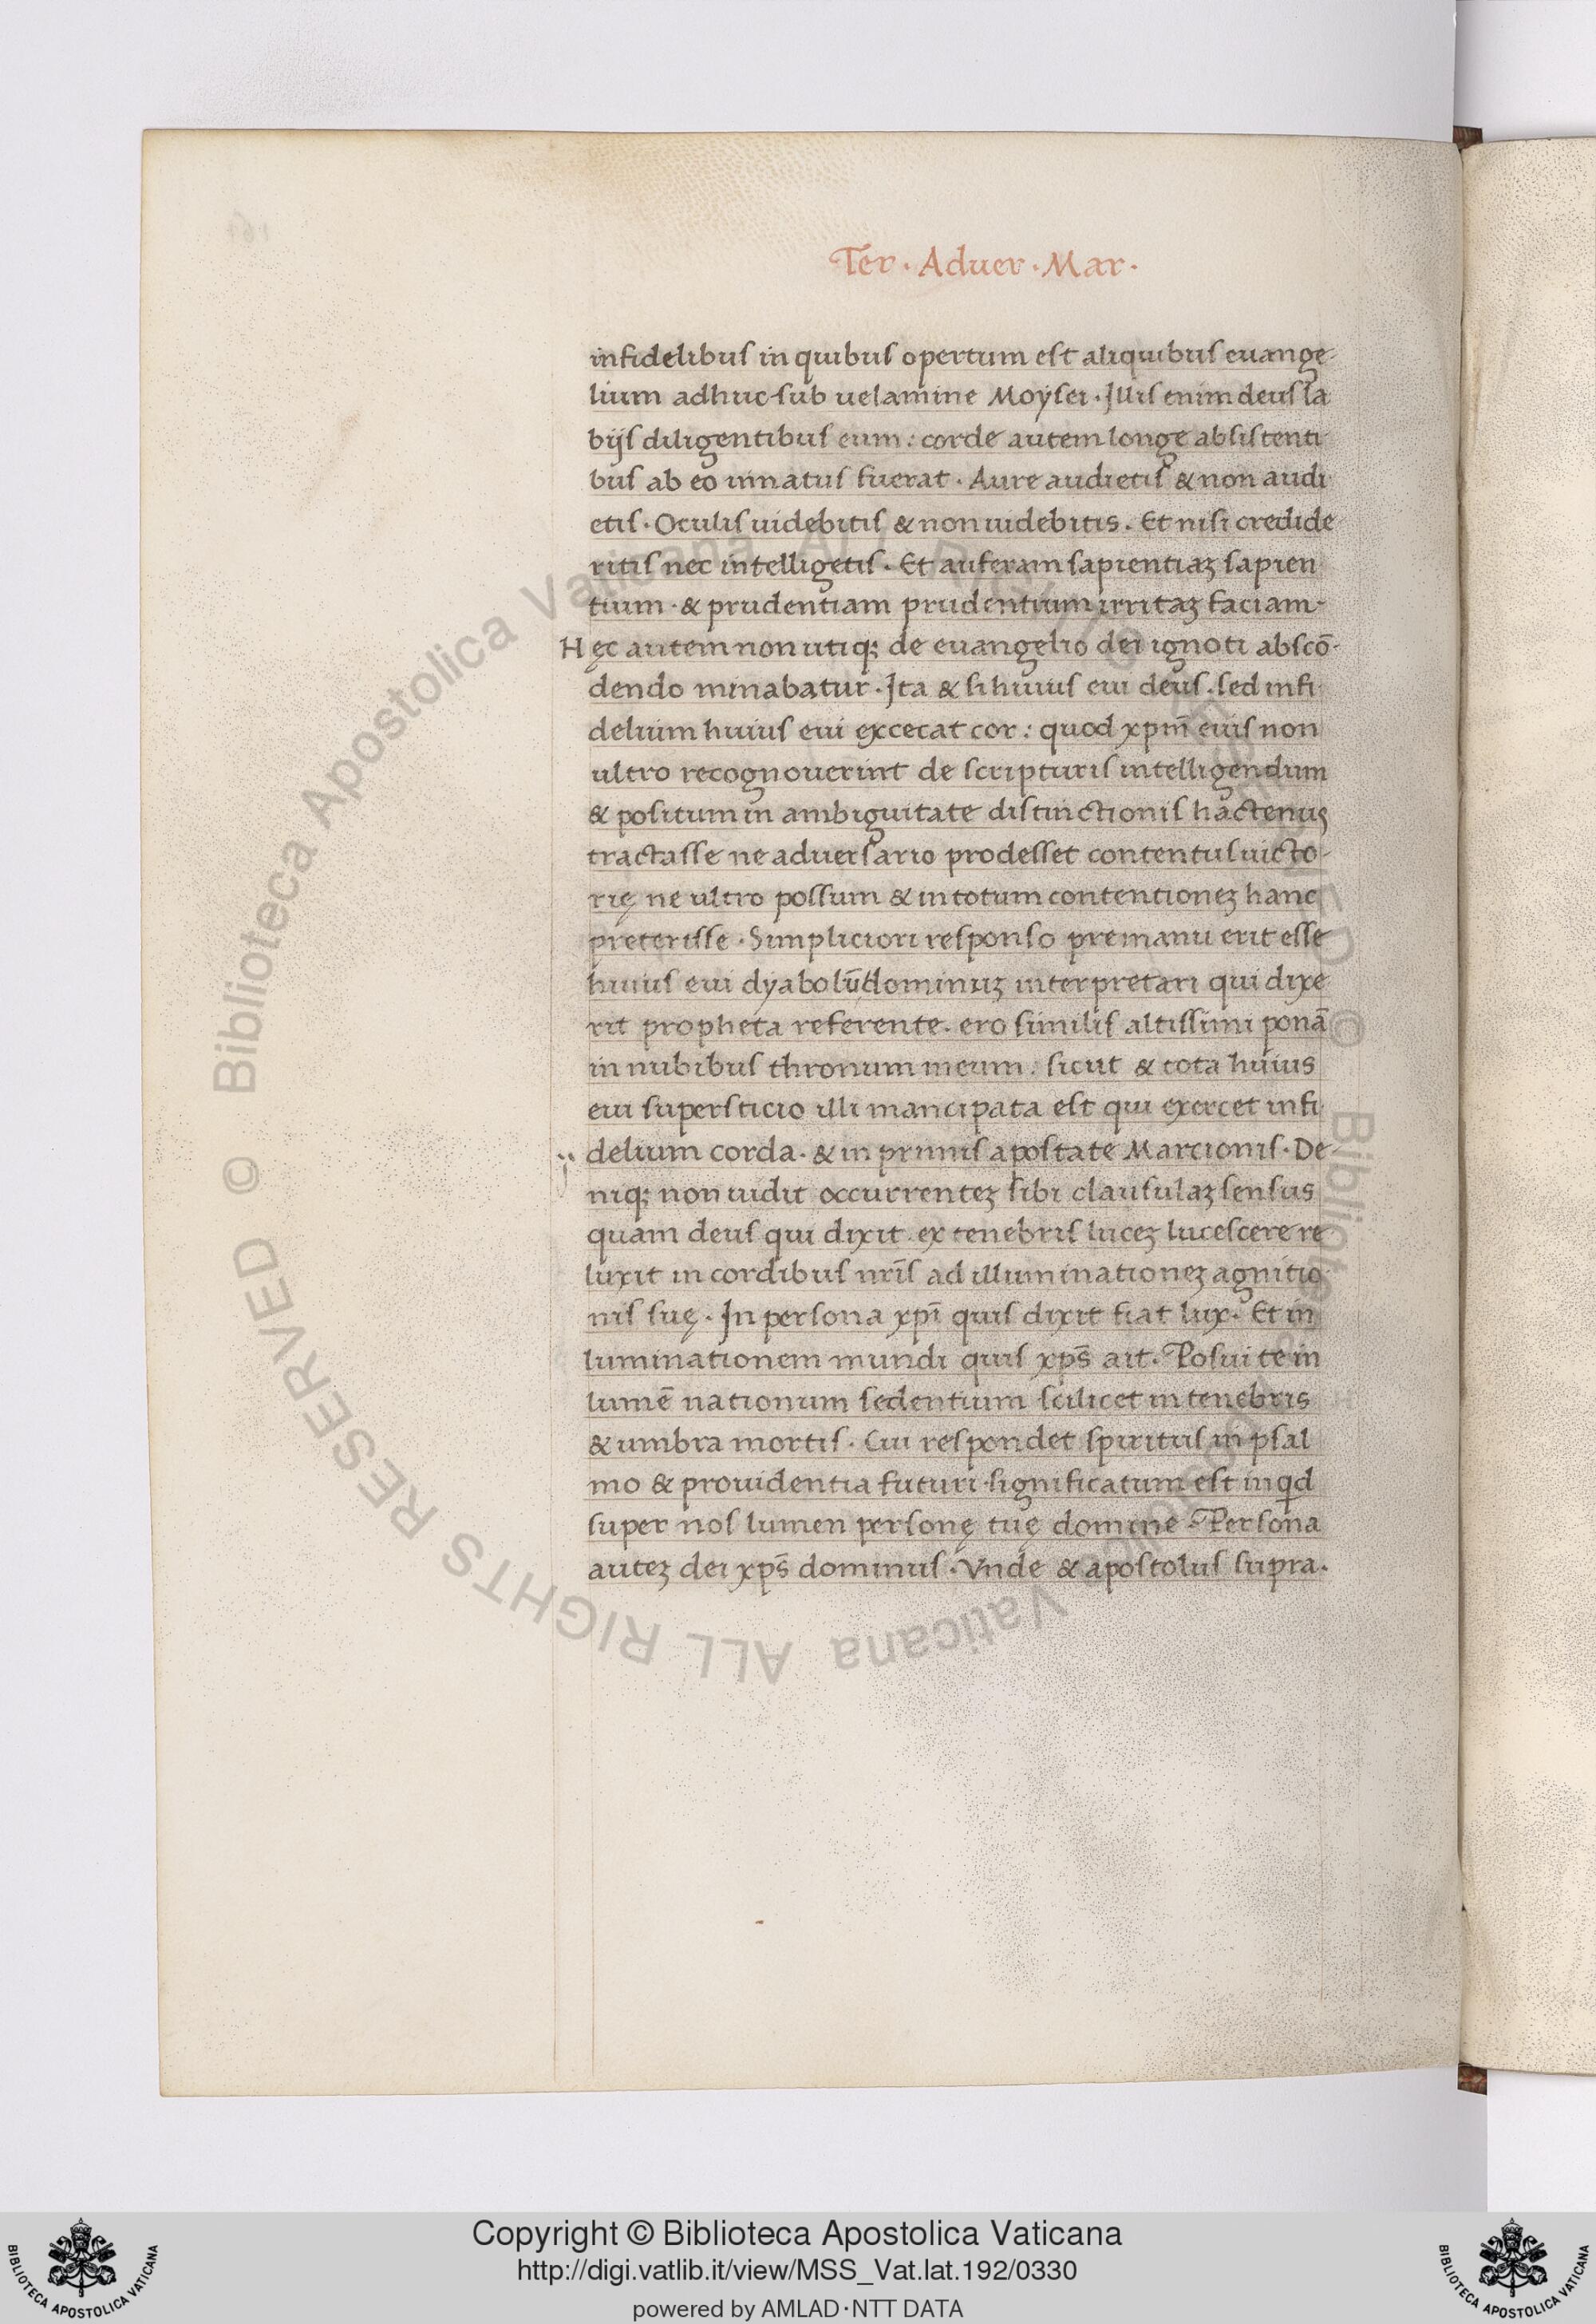 Ter · Aduer · Mar ·
infidelibus in quibus opertum est aliquibus euange-
lium adhuc sub uelamine Moysei · Illis enim deus la
bijs diligentibus eum : corde autem longe absistenti
bus ab eo minatus fuerat · Aure audietis & non audi
etis · Oculis uidebitis & non uidebitis . Et nisi credide
ritis nec intelligetis . Et auferam sapientiaꝫ sapien
tium · & prudentiam prudentium irritaꝫ faciam -
Hęc autem non utiqꝫ de euangelio dei ignoti abscō-
dendo minabatur · Ita & si huius eui deus . sed infi
delium huius eui excecat cor : quod xpm̄ eius non
ultro recognouerint de scripturis intelligendum
& positum in ambiguitate distinctionis hactenus
tractasse ne aduersario prodesset contentus uicto-
rię ne ultro possum & in totum contentioneꝫ hanc
preterisse · Simpliciori responso pre manu erit esse
huius eui dyabolū dominuꝫ interpretari qui dixe
rit propheta referente . ero similis altissimi ponā
in nubibus thronum meum : sicut & tota huius
eui supersticio illi mancipata est qui excecet infi
delium corda · & in primis apostate Marcionis · De-
niqꝫ non uidit occurrenteꝫ sibi clausulaꝫ sensus
quam deus qui dixit . ex tenebris luceꝫ lucescere re
luxit in cordibus nr̄is ad illuminationeꝫ agnitio
nis suę · In persona xpī quis dixit fiat lux · Et in
luminationem mundi quis xps̄ ait · Posui te in
lumē nationum sedentium scilicet in tenebris
& umbra mortis · Cui respondet spiritus in psal
mo & prouidentia futuri significatum est inqd
super nos lumen personę tuę domine · Persona
auteꝫ dei xps̄ dominus · Vnde & apostolus supra .
© Biblioteca Apostolica Vaticana ALL RIGHTS RESERVED © Biblioteca Apostolica Vaticana ALL RIGHTS RESERVED
Copyright © Biblioteca Apostolica Vaticana
http://digi.vatlib.it/view/MSS_Vat.lat.192/0330
powered by AMLAD·NTT DATA
BIBLIOTECA APOSTOLICA VATICANA
BIBLIOTECA APOSTOLICA VATICANA